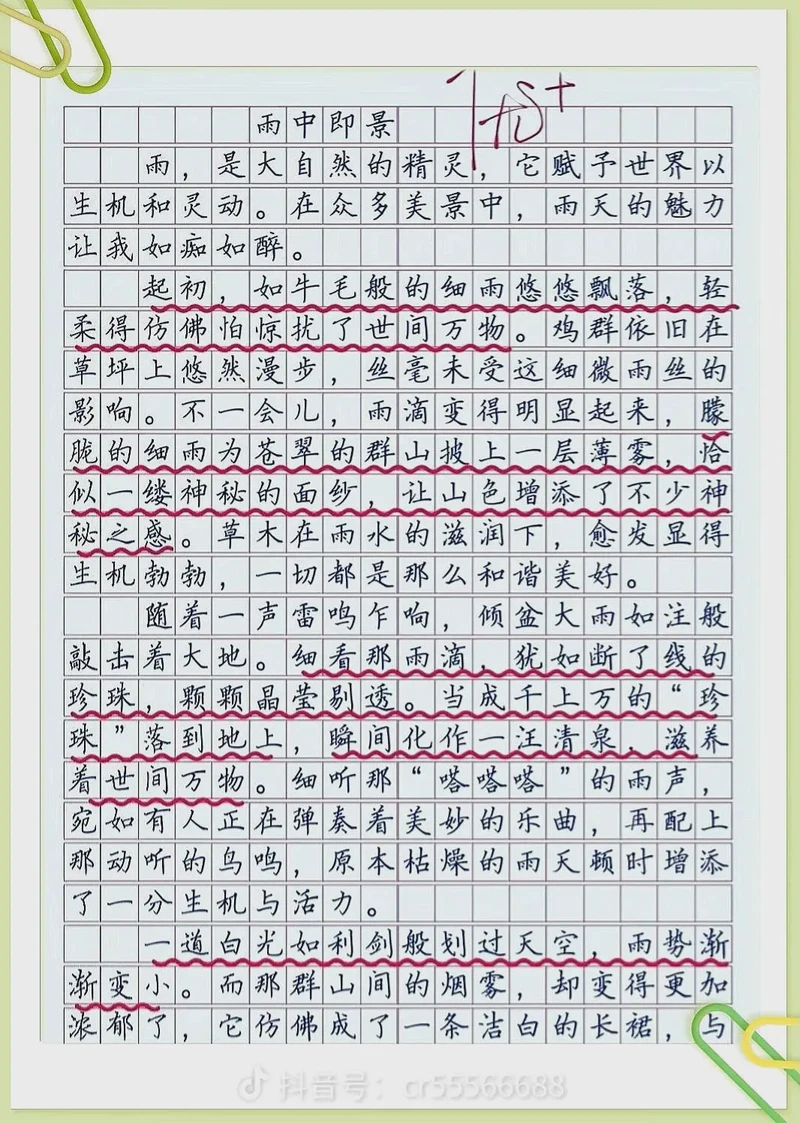 优+
雨中即景
雨，是大自然的精灵，它赋予世界以
生机和灵动。在众多美景中，雨天的魅力
让我如痴如醉。
起初，如牛毛般的细雨悠悠飘落，轻
柔得仿佛怕惊扰了世间万物。鸡群依旧在
草坪上悠然漫步，丝毫未受这细微雨丝的
影响。不一会儿，雨滴变得明显起来，朦
胧的细雨为苍翠的群山披上一层薄雾，恰
似一缕神秘的面纱，让山色增添了不少神
秘之感。草木在雨水的滋润下，愈发显得
生机勃勃，一切都是那么和谐美好。
随着一声雷鸣乍响，倾盆大雨如注般
敲击着大地。细看那雨滴，犹如断了线的
珍珠，颗颗晶莹剔透。当成千上万的“珍
珠”落到地上，瞬间化作一汪清泉，滋养
着世间万物。细听那“嗒嗒嗒”的雨声，
宛如有人正在弹奏着美妙的乐曲，再配上
那动听的鸟鸣，原本枯燥的雨天顿时增添
了一分生机与活力。
一道白光如利剑般划过天空，雨势渐
渐变小。而那群山间的烟雾，却变得更加
浓郁了，它仿佛成了一条洁白的长裙，与
抖音号：cr55566688